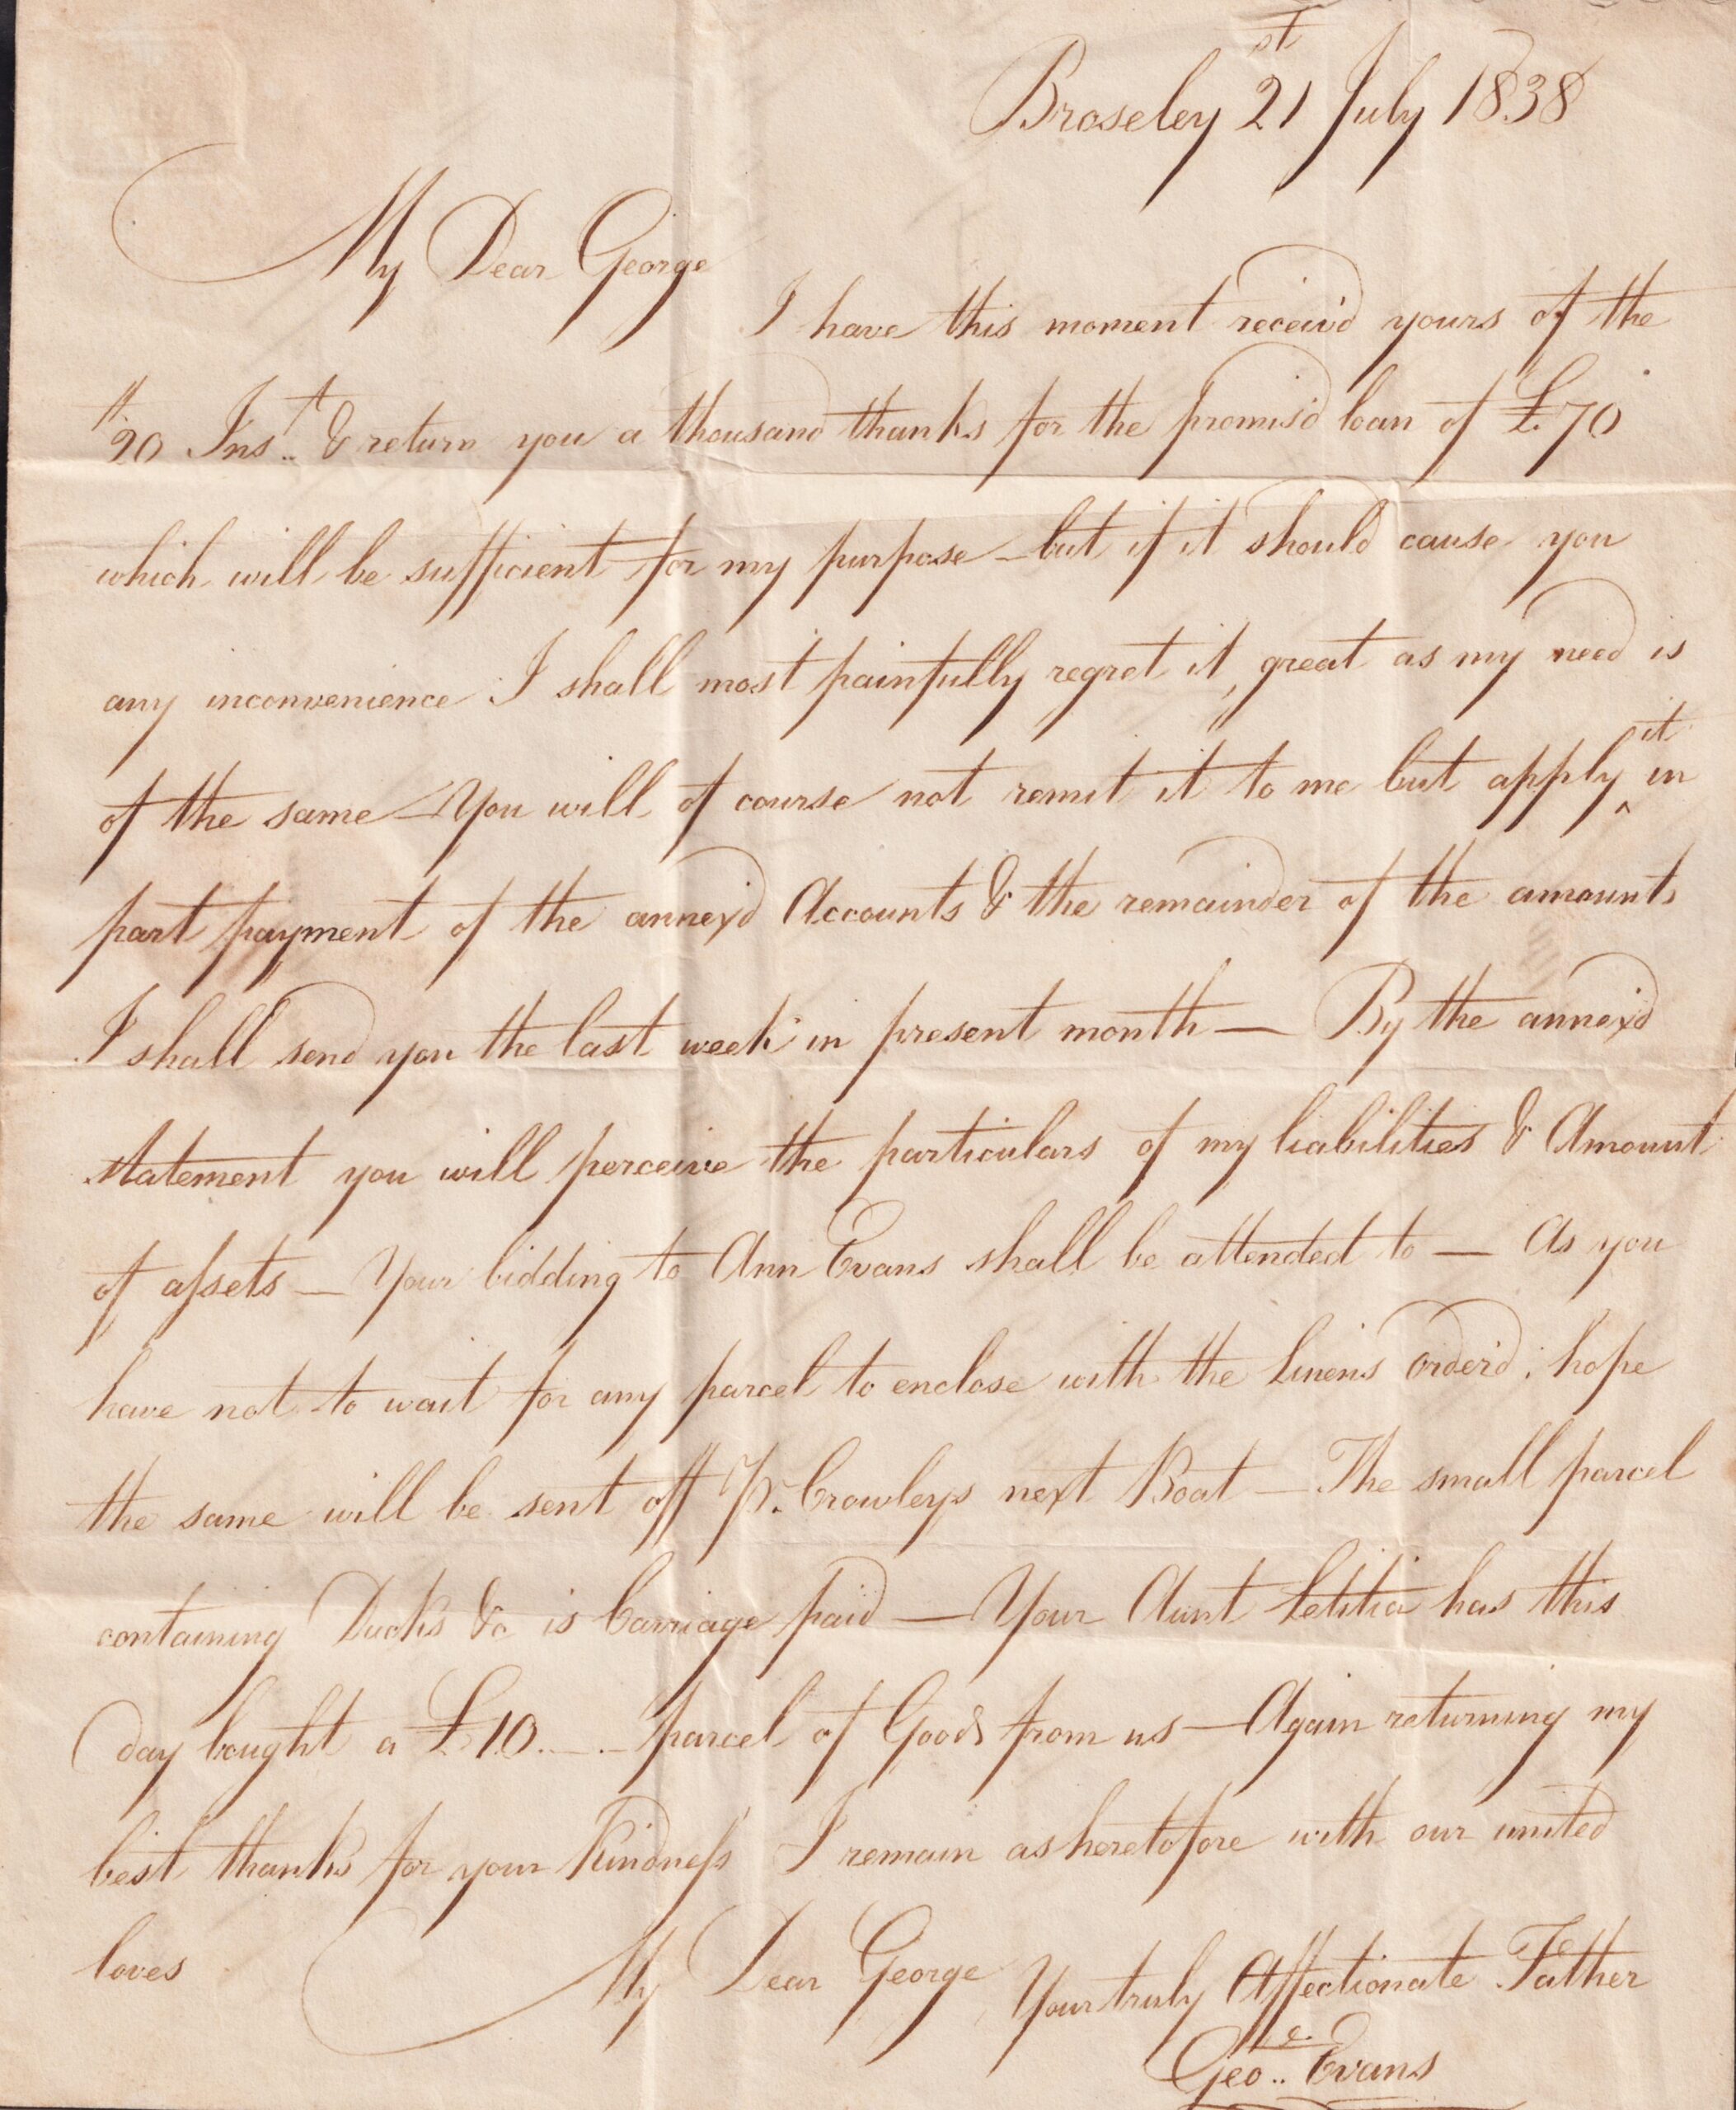 Broseley 21st July 1838
My Dear George
I have this moment receiv'd yours of the
20th Inst. & return you a thousand thanks for the promis'd loan of £70
which will be sufficient for my purpose – but if it should cause you
any inconvenience I shall most painfully regret it, great as my need is
of the same – You will of course not remit it to me but apply ^it in
part payment of the annex'd Accounts & the remainder of the amounts
I shall send you the last week in present month — By the annex'd
statement you will perceive the particulars of my liabilities & Amount
of aſsets — Your bidding to Ann Evans shall be attended to — As you
have not to wait for any parcel to enclose with the Linens Order'd, hope
the same will be sent off Pr. Crowleys next Boat — The small parcel
containing Ducks &c is Carriage paid — Your Aunt Letitia has this
day bought a £10.—.– parcel of Goods from us — Again returning my
best thanks for your Kindneſs I remain as heretofore with our united
loves My Dear George Your truly Affectionate Father
Geoe.. Evans